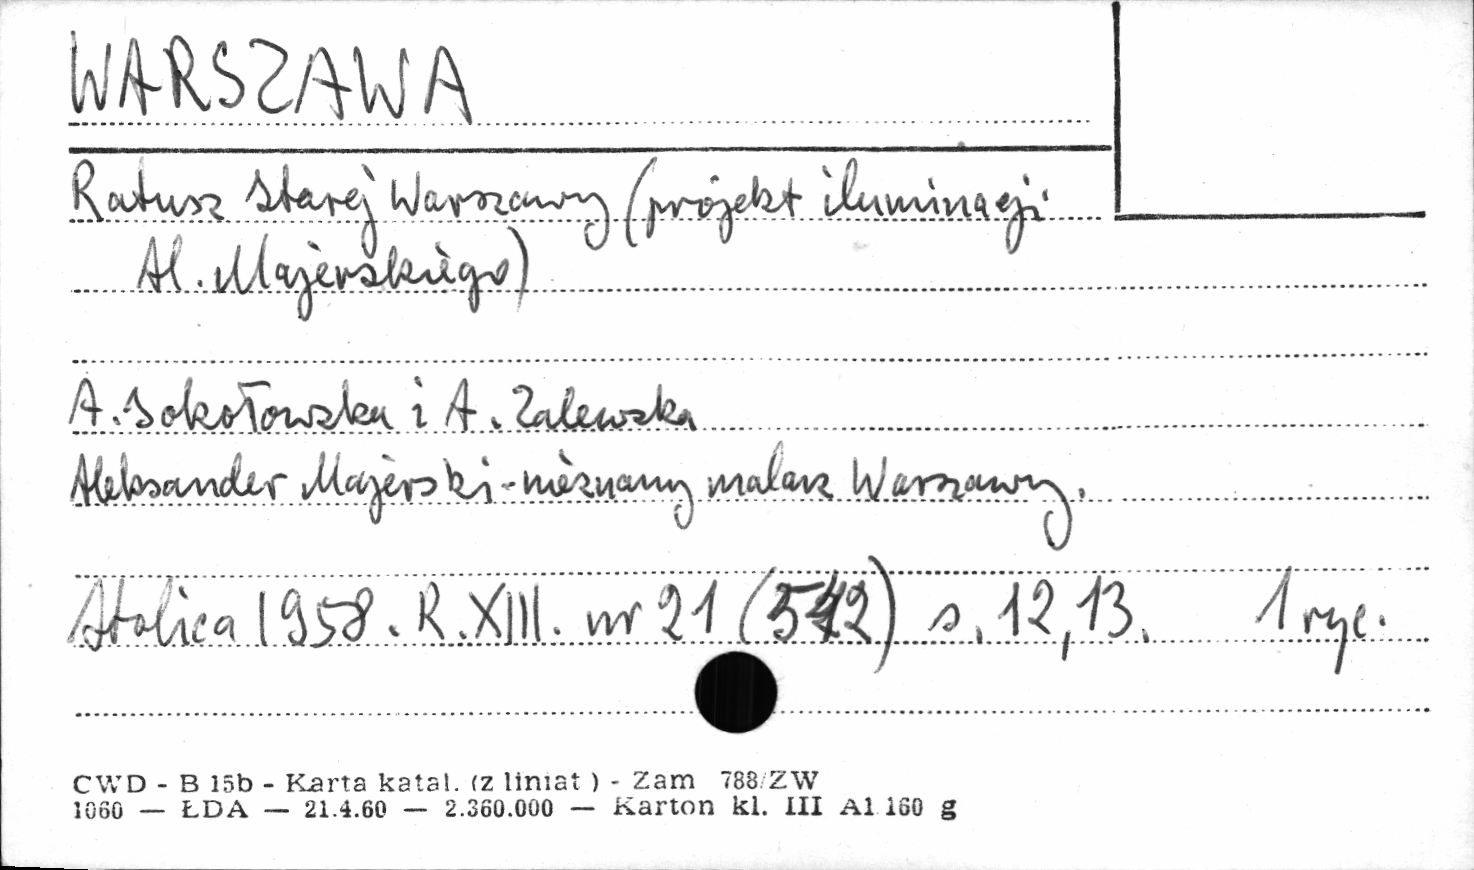 WARSZAWA
Ratusz Starej Warszawy (projekt iluminacji
Al. Majerskiego)
A. Sokołowska i A. Zalewska
Aleksander Majerski - nieznany malarz Warszawy.
Stolica 1958. R. XIII. nr 21 (542) s. 12, 13. 1 ryc.
CWD - B 15b - Karta katal. (z liniat ) - Zam 788/ZW
1060 — ŁDA — 21.4.60 — 2.360.000 — Karton kl. III A1 160 g